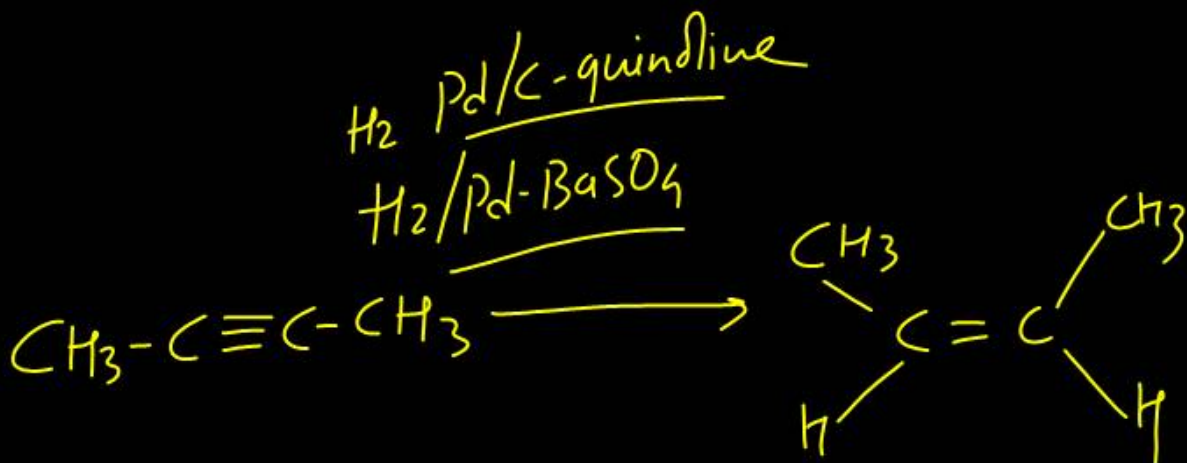 H2 Pd/C-quinoline
H2/Pd-BaSO4
CH3-C≡C-CH3
CH3 CH3
C=C
H H